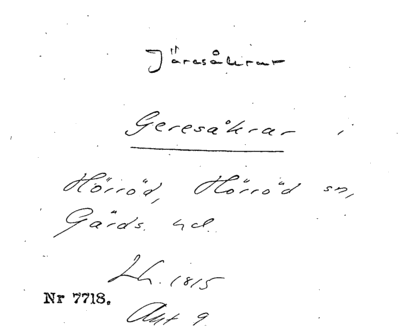 Järesåkrar
Geresåkrar i
Hörröd, Hörröd sn,
Gärds hd.
Lh. 1815
Nr 7718.
Akt 9